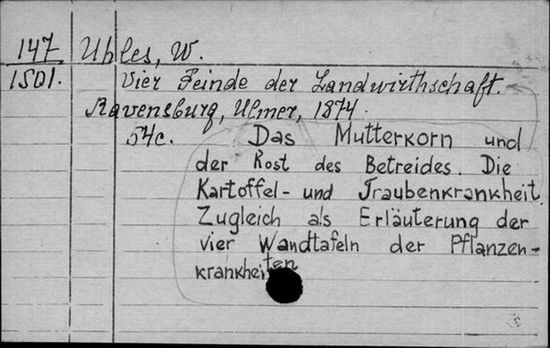 147 Uhles, W.
1501. Vier Feinde der Landwirthschaft.
Ravensburg, Ulmer, 1874.
54c. Das Mutterkorn und
der Rost des Betreides. Die
Kartoffel- und Traubenkrankheit.
Zugleich als Erläuterung der
vier Wandtafeln der Pflanzen-
krankheiten